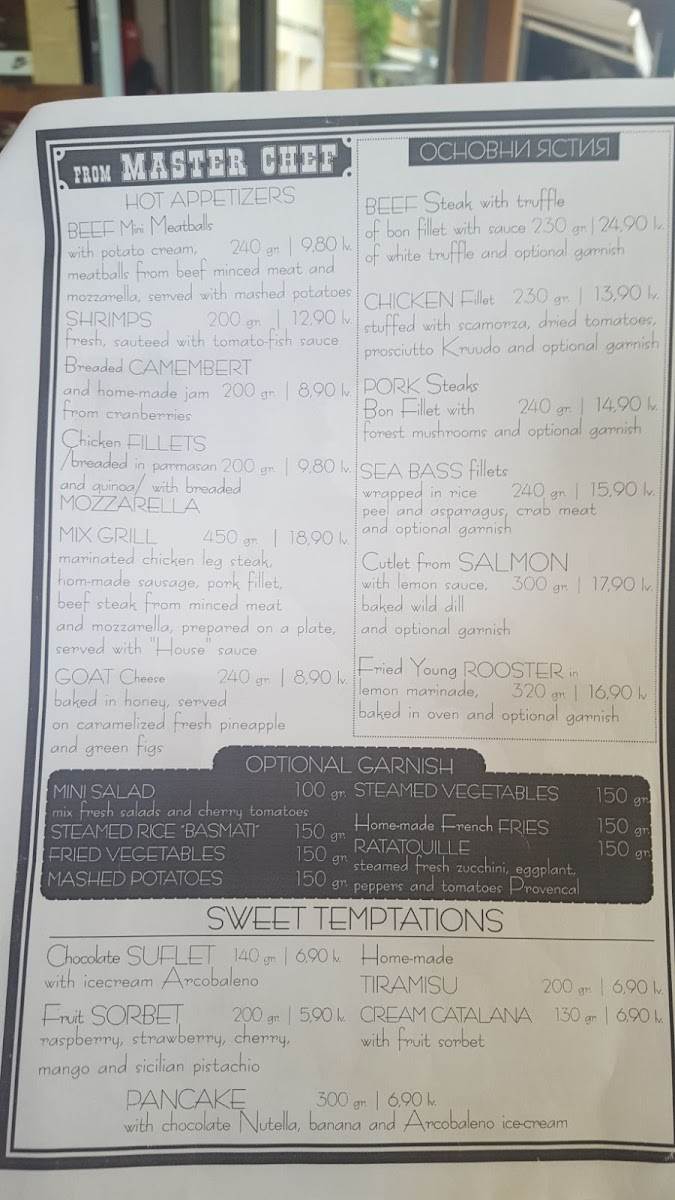 FROM MASTER CHEF
HOT APPETIZERS
BEEF Mini Meatballs
with potato cream, 240 gr. | 9,80 lv.
meatballs from beef minced meat and
mozzarella, served with mashed potatoes
SHRIMPS 200 gr. | 12,90 lv.
fresh, sauteed with tomato-fish sauce
Breaded CAMEMBERT
and home-made jam 200 gr. | 8,90 lv.
from cranberries
Chicken FILLETS
/breaded in parmasan 200 gr. | 9,80 lv.
and quinoa/ with breaded
MOZZARELLA
MIX GRILL 450 gr. | 18,90 lv.
marinated chicken leg steak,
hom-made sausage, pork fillet,
beef steak from minced meat
and mozzarella, prepared on a plate,
served with "House" sauce
GOAT Cheese 240 gr. | 8,90 lv.
baked in honey, served
on caramelized fresh pineapple
and green figs
ОСНОВНИ ЯСТИЯ
BEEF Steak with truffle
of bon fillet with sauce 230 gr. | 24,90 lv.
of white truffle and optional garnish
CHICKEN Fillet 230 gr. | 13,90 lv.
stuffed with scamorza, dried tomatoes,
prosciutto Kruudo and optional garnish
PORK Steaks
Bon Fillet with 240 gr. | 14,90 lv.
forest mushrooms and optional garnish
SEA BASS fillets
wrapped in rice 240 gr. | 15,90 lv.
peel and asparagus, crab meat
and optional garnish
Cutlet from SALMON
with lemon sauce, 300 gr. | 17,90 lv.
baked wild dill
and optional garnish
Fried Young ROOSTER in
lemon marinade, 320 gr. | 16,90 lv
baked in oven and optional garnish
OPTIONAL GARNISH
MINI SALAD 100 gr.
mix fresh salads and cherry tomatoes
STEAMED RICE "BASMATI" 150 gr.
FRIED VEGETABLES 150 gr.
MASHED POTATOES 150 gr.
STEAMED VEGETABLES 150 gr.
Home-made French FRIES 150 gr.
RATATOUILLE 150 gr.
steamed fresh zucchini, eggplant,
peppers and tomatoes Provencal
SWEET TEMPTATIONS
Chocolate SUFLET 140 gr. | 6,90 lv.
with icecream Arcobaleno
Fruit SORBET 200 gr. | 5,90 lv.
raspberry, strawberry, cherry,
mango and sicilian pistachio
Home-made
TIRAMISU 200 gr. | 6,90 lv.
CREAM CATALANA 130 gr. | 6,90 lv.
with fruit sorbet
PANCAKE 300 gr. | 6,90 lv.
with chocolate Nutella, banana and Arcobaleno ice-cream